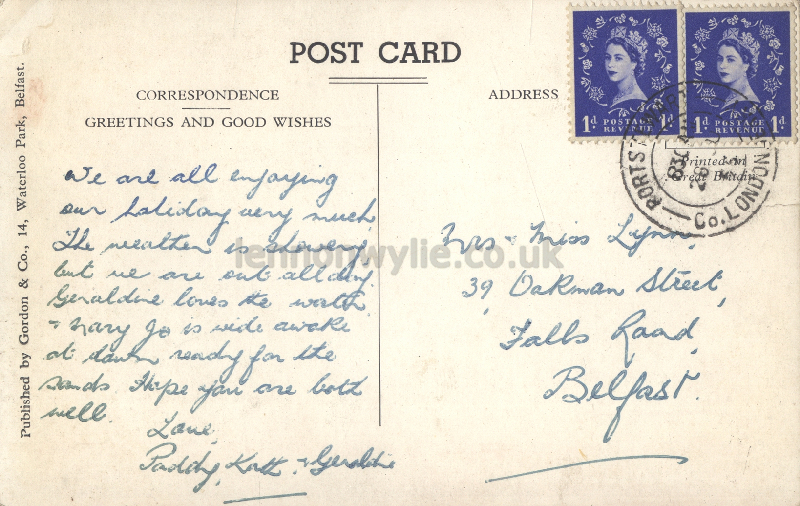 POST CARD
CORRESPONDENCE
GREETINGS AND GOOD WISHES
ADDRESS
Printed in
Great Britain
1d POSTAGE REVENUE 1d
1d POSTAGE REVENUE 1d
PORTSTEWART
830 AM
28
Co. LONDONDERRY
Published by Gordon & Co., 14, Waterloo Park, Belfast.
We are all enjoying
our holiday very much
The weather is showery
but we are out all day.
Geraldine loves the water
+ Mary Jo is wide awake
at dawn ready for the
sands Hope you are both
well.
Love
Paddy, Kath + Geraldine
Mrs + Miss Lynn,
39, Oakman Street,
Falls Road,
Belfast.
lennonwylie.co.uk